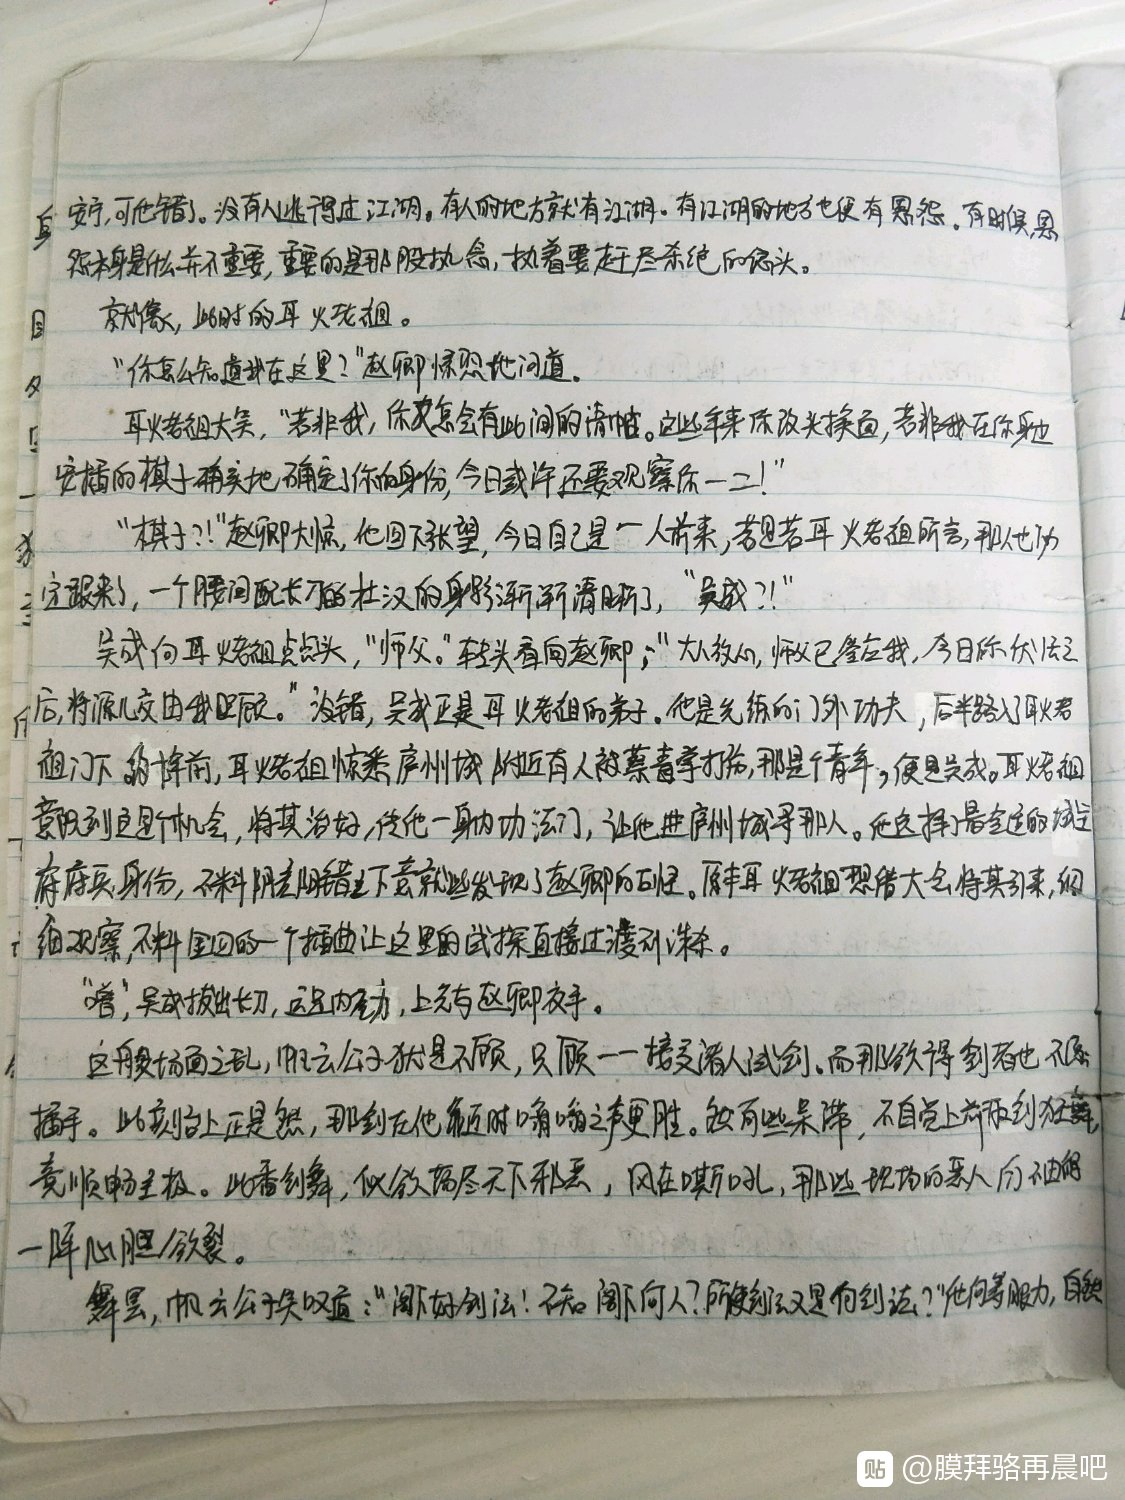 安宁，可他错了。没有人逃得过江湖。有人的地方就有江湖。有江湖的地方也便有恩怨。有时候，恩
怨本身是什么并不重要，重要的是那股执念，执着要赶尽杀绝的念头。
就像，此时的耳火老祖。
“你怎么知道我在这里？”赵卿惊恐地问道。
耳火老祖大笑，“若非我，你又怎会有此间的请帖。这些年来你改头换面，若非我在你身边
安插的棋子确实地确定了你的身份，今日或许还要观察你一二！”
“棋子？！”赵卿大惊，他四下张望，今日自己是一人前来，若是若耳火老祖所言，那人也必
定跟来了，一个腰间配长刀的壮汉的身影渐渐清晰了，“吴成？！”
吴成向耳火老祖点点头，“师父。”转头看向赵卿；“大人放心，师父已答应我，今日你伏法之
后，将源儿交由我照顾。”没错，吴成正是耳火老祖的弟子。他是先练的门外功夫，后半路入了耳火老
祖门下。 年前，耳火老祖惊悉庐州城附近有人被蔡青掌打伤，那是个青年，便是吴成。耳火老祖
意识到这是个机会，将其治好，传他一身内功法门，让他进庐州城寻那人。他选择了最合适的城
府府兵身份，不料阴差阳错之下竟就此发现了赵卿的 。原本耳火老祖想借大会将其引来，细
细观察，不料 的一个插曲让这里的试探直接过渡到诛杀。
“噌”，吴成拔出长刀，运足内劲，上先与赵卿交手。
这般场面之乱，帆云公子犹是不顾，只顾一一接受诸人试剑。而那欲得剑者也不
插手。此刻台上正是 ，那剑在他靠近时嗡嗡之声更胜。 有些呆滞，不自觉上前取剑狂舞，
竟顺畅至极。此番剑舞，似欲荡尽天下邪恶，风在嘶吼，那些现场的恶人 不由得
一阵心胆欲裂。
舞罢，帆云公子笑叹道：“阁下好剑法！不知阁下何人？所使剑法又是何剑法？”他何等眼力，自然
@膜拜骆再晨吧